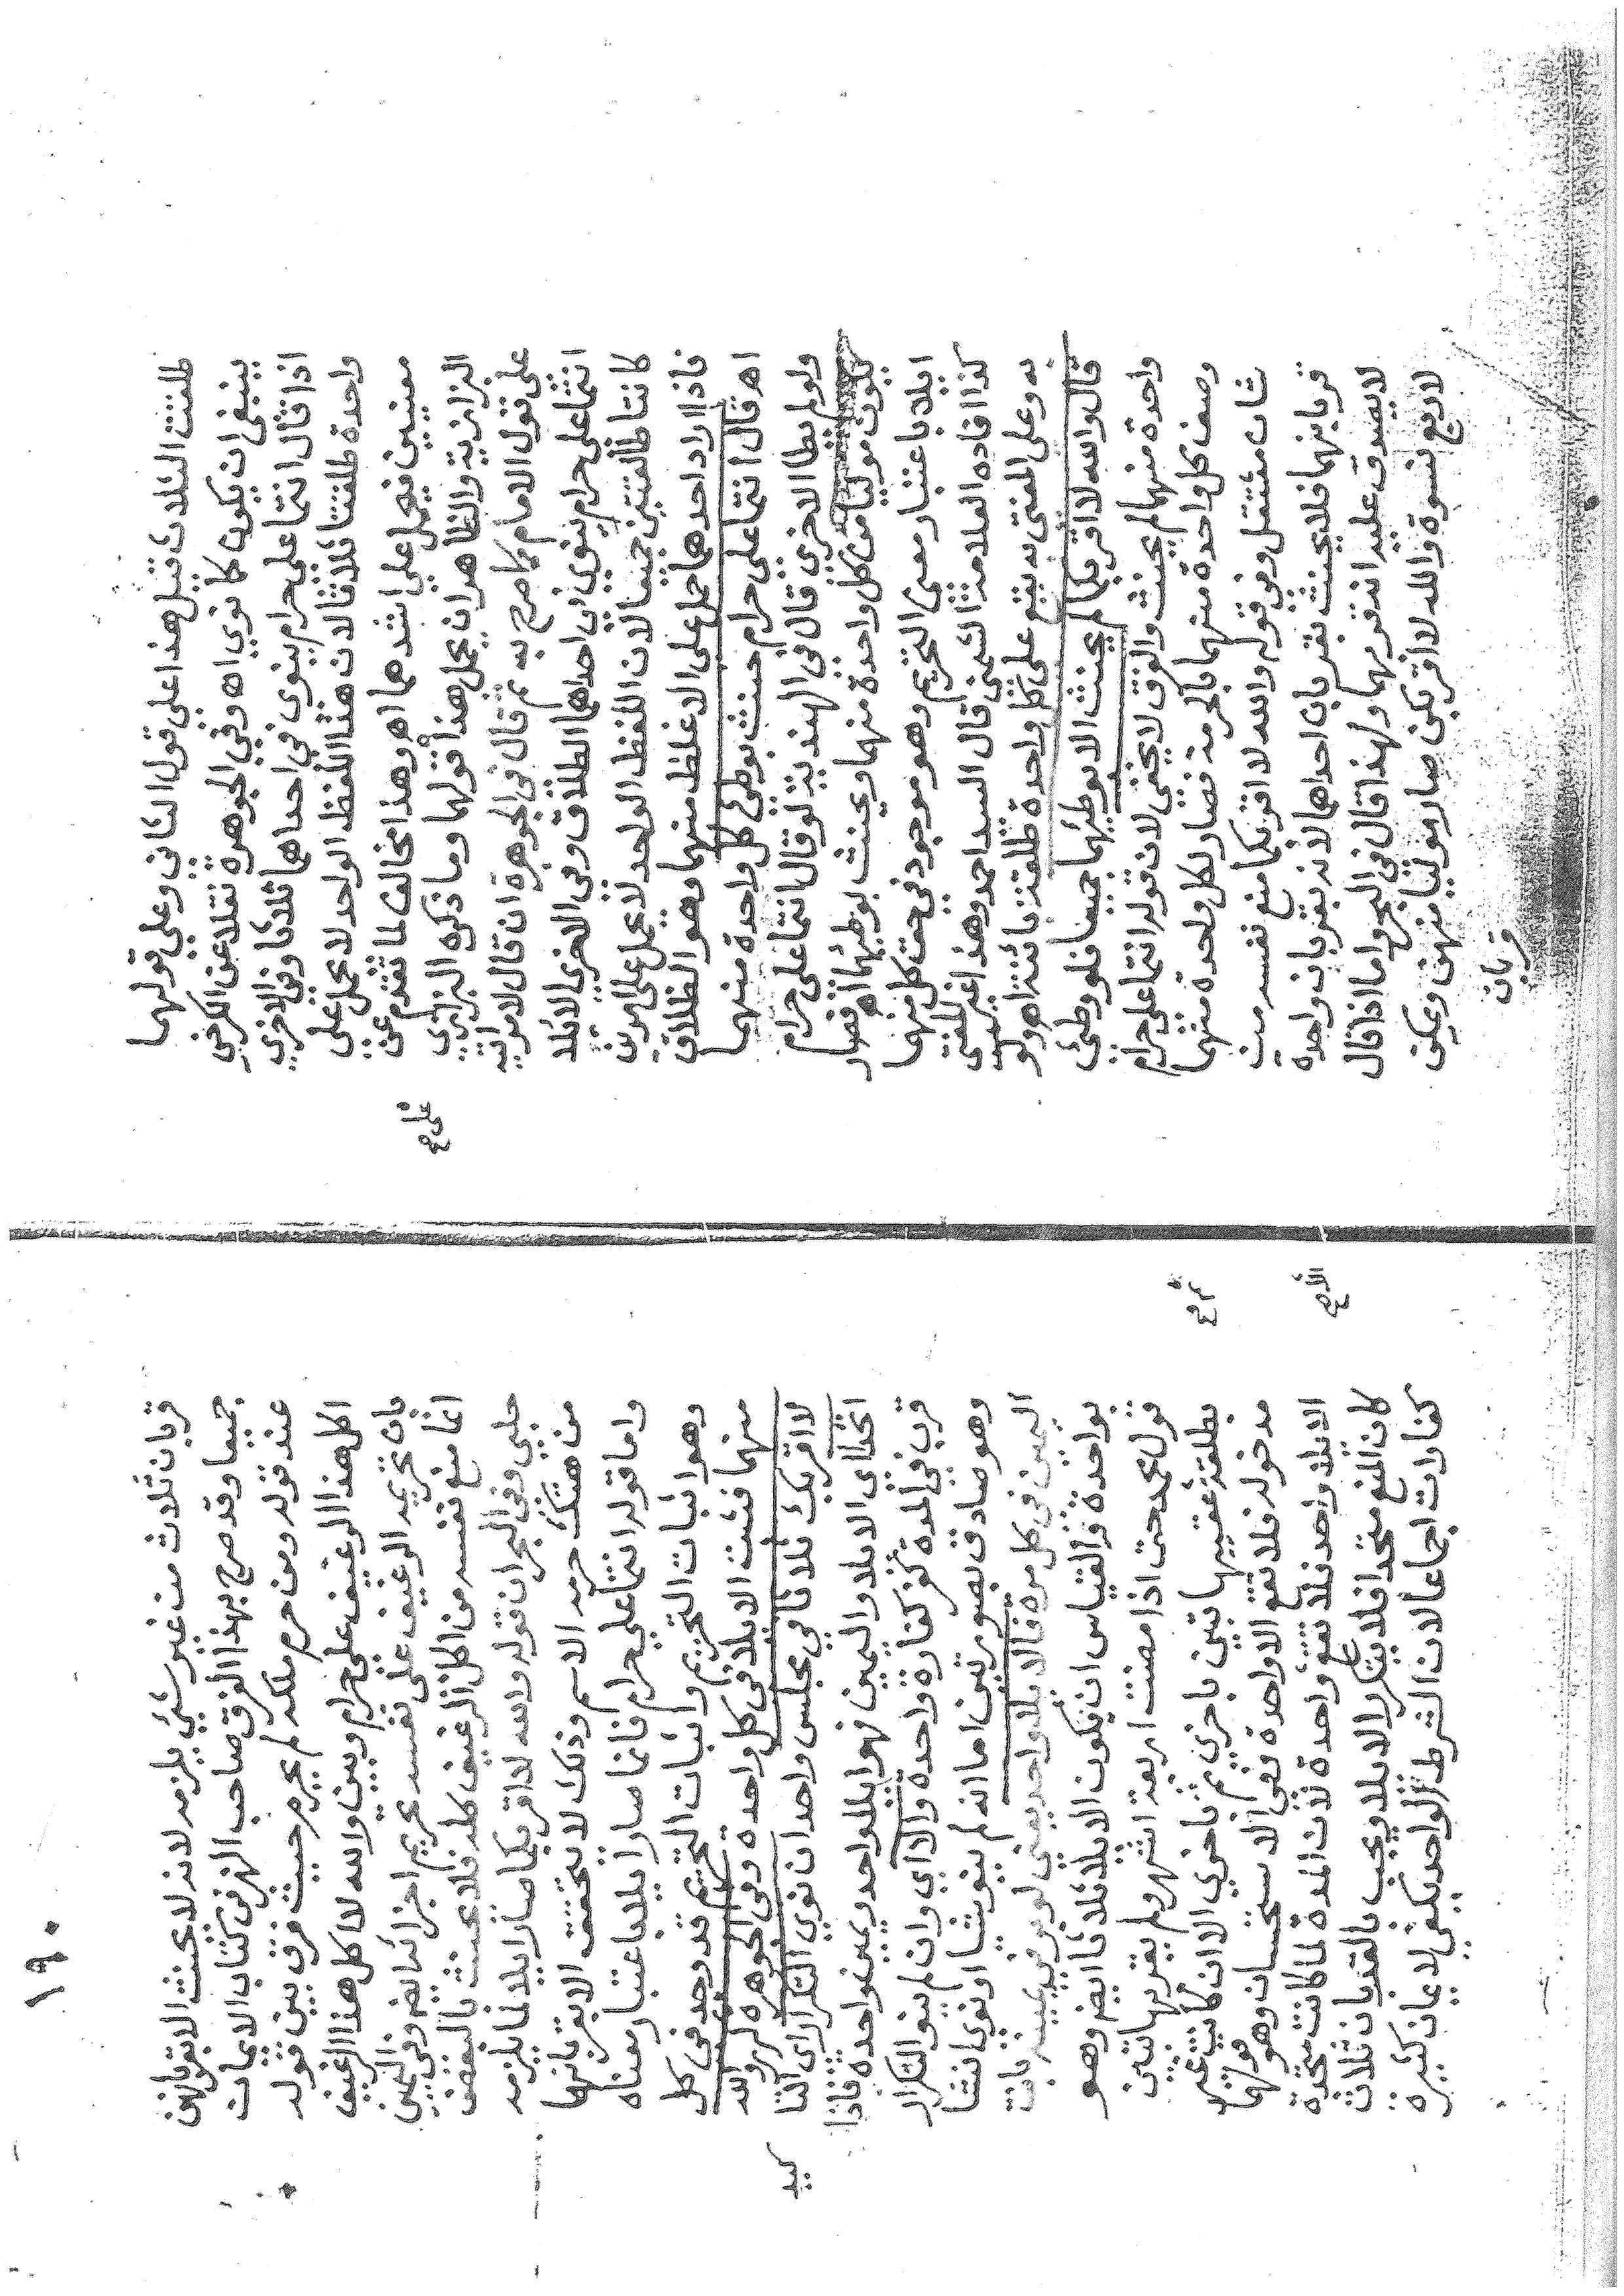 طلقت الثلاث قيل هذا على قول الثاني وعلى قولهما
ينبغي ان يكون كما نوى اه وفي الجوهرة نقلا عن الكرخي
اذا قال انتما علي حرام ينوي في احداهما ثلاثا وفي الاخرى
واحدة طلقتا ثلاثا لان هذا اللفظ الواحد لا يحمل على
معنيين فيحمل على اشدهما اه وهذا مخالف لما تقدم عن
البزازية والظاهر ان يحمل هذا قولهما وما ذكره البزازي
على قول الامام كما صرح به ثم قال في الجوهرة ان قال لامراتيه
انتما علي حرام ينوي في احداهما الطلاق وفي الاخرى الايلا
كانتا طالقتين جميعا لان اللفظ الواحد لا يحمل على امرين
فاذا اراد احدهما حمل على الاغلظ منهما وهو الطلاق
اه قال انتما علي حرام حنث بوطئ كل واحدة منهما
ولو لم يطا الاخرى قال في الهندية لو قال انتما علي حرام
يكون موليا من كل واحدة منهما ويحنث بوطئها اه فصار
ايلا باعتبار معنى التحريم وهو موجود في حق كل منهما
كذا افاده العلامة الشمني قال السيد احمد وهذا غير المفتى
به وعلى المفتى به يقع على كل واحدة طلقة بائنة اه ولو
قال والله لا اقربكما لم يحنث الا بوطئهما جميعا فلو وطئ
واحدة منهما لم يحنث والفرق لا يخفى لان قوله انتما علي حرام
وصف كل واحدة منهما بالحرمة فصار لكل واحدة منهما
شان مستقل وفي قوله والله لا اقربكما منع نفسه من
قربانهما فلا يحنث بقربان احداهما لانه بقربان واحدة
لا يصدق عليه انه قربهما ولهذا قال في البحر واما اذا قال
لاربع نسوة والله لا اقربكن صار موليا منهن ويمكن
قربان
على صح
١٩٠
قربان ثلاث من غير شيء يلزمه لانه لا يحنث الا بقربانهن
جميعا وقد صرح بهذا الفرق صاحب النهر في كتاب الايمان
عند قوله ومن حرم ملكه لم يحرم حيث فرق بين قوله
اكل هذا الرغيف علي حرام وبين والله لا اكل هذا الرغيف
بان تحريمه الرغيف على نفسه تحريم اجزائه ايضا وفي اليمين
انما منع نفسه من اكل الرغيف كله فلا يحنث بالبعض
حلبي وفي البحر ان قوله والله لا اقربكما صار ايلا لما يلزمه
من هتك حرمة الاسم وذلك لا يتحقق الا بقربانهما
واما قوله انتما علي حرام فانما صار ايلا باعتبار معناه
وهو اثبات التحريم واثبات التحريم قد وجد في كل
منهما فثبت الايلا في كل واحدة وفي الجوهرة كرر والله
لا اقربك ثلاثا في مجلس واحد ان نوى التكرار اي التا
كيد
اتحدا اي الايلا واليمين فهو ايلا واحد ويمين واحدة فاذا
قرب في المدة كفر كفارة واحدة والا اي وان لم ينو التكرار
وهو صادق بصورتين اما انه لم ينو شيا او نوى انشا
اليمين في كل مرة فالايلا واحد يعني لو بر في يمينه بانت
بواحدة والقياس ان يكون الايلا ثلاثا ايضا وهو
قول محمد حتى اذا مضت اربعة اشهر ولم يقربها تبين
بطلقة عقيبها تبين باخرى ثم باخرى الا ان كانت غير
مدخولة فلا تقع الا واحدة وفي الاستحسان وهو قولهما
الايلا واحد فلا تقع الا واحدة لان المدة لما كانت متحدة
كان المنع متحدا فلا يتكرر الايلا ويجب بالقربان ثلاث
كفارات اجماعا لان الشرط الواحد يكفي لايمان كثيرة
ثم صح